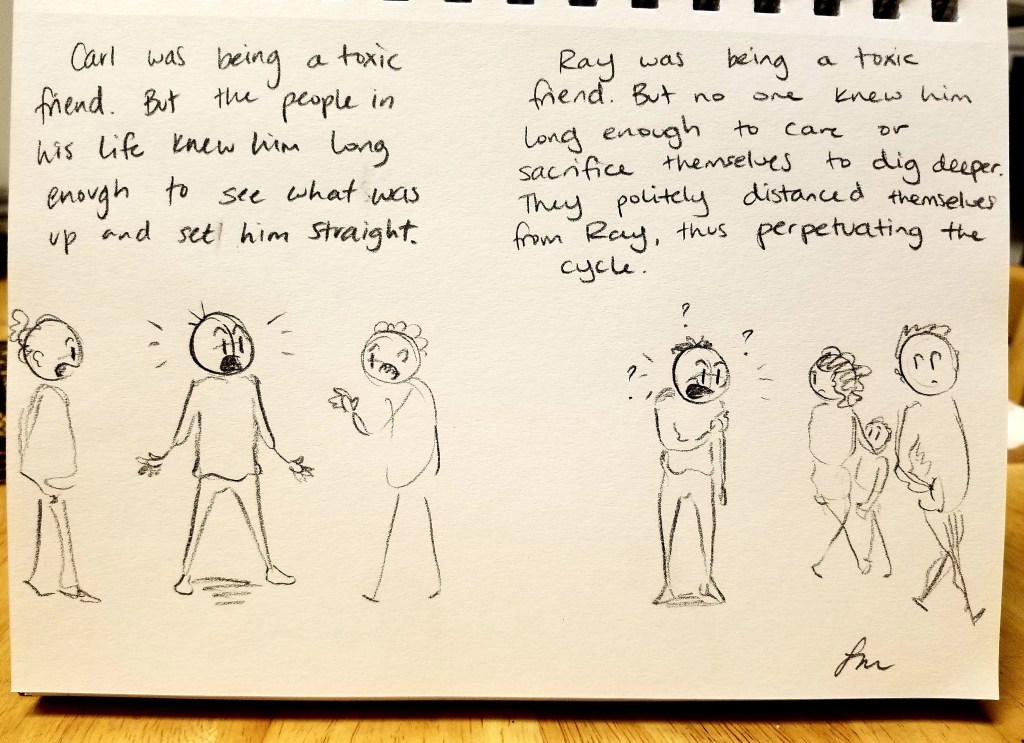 Carl was being a toxic
friend. But the people in
his life knew him long
enough to see what was
up and set him straight.
Ray was being a toxic
friend. But no one knew him
long enough to care or
sacrifice themselves to dig deeper.
They politely distanced themselves
from Ray, thus perpetuating the
cycle.
?
?
?